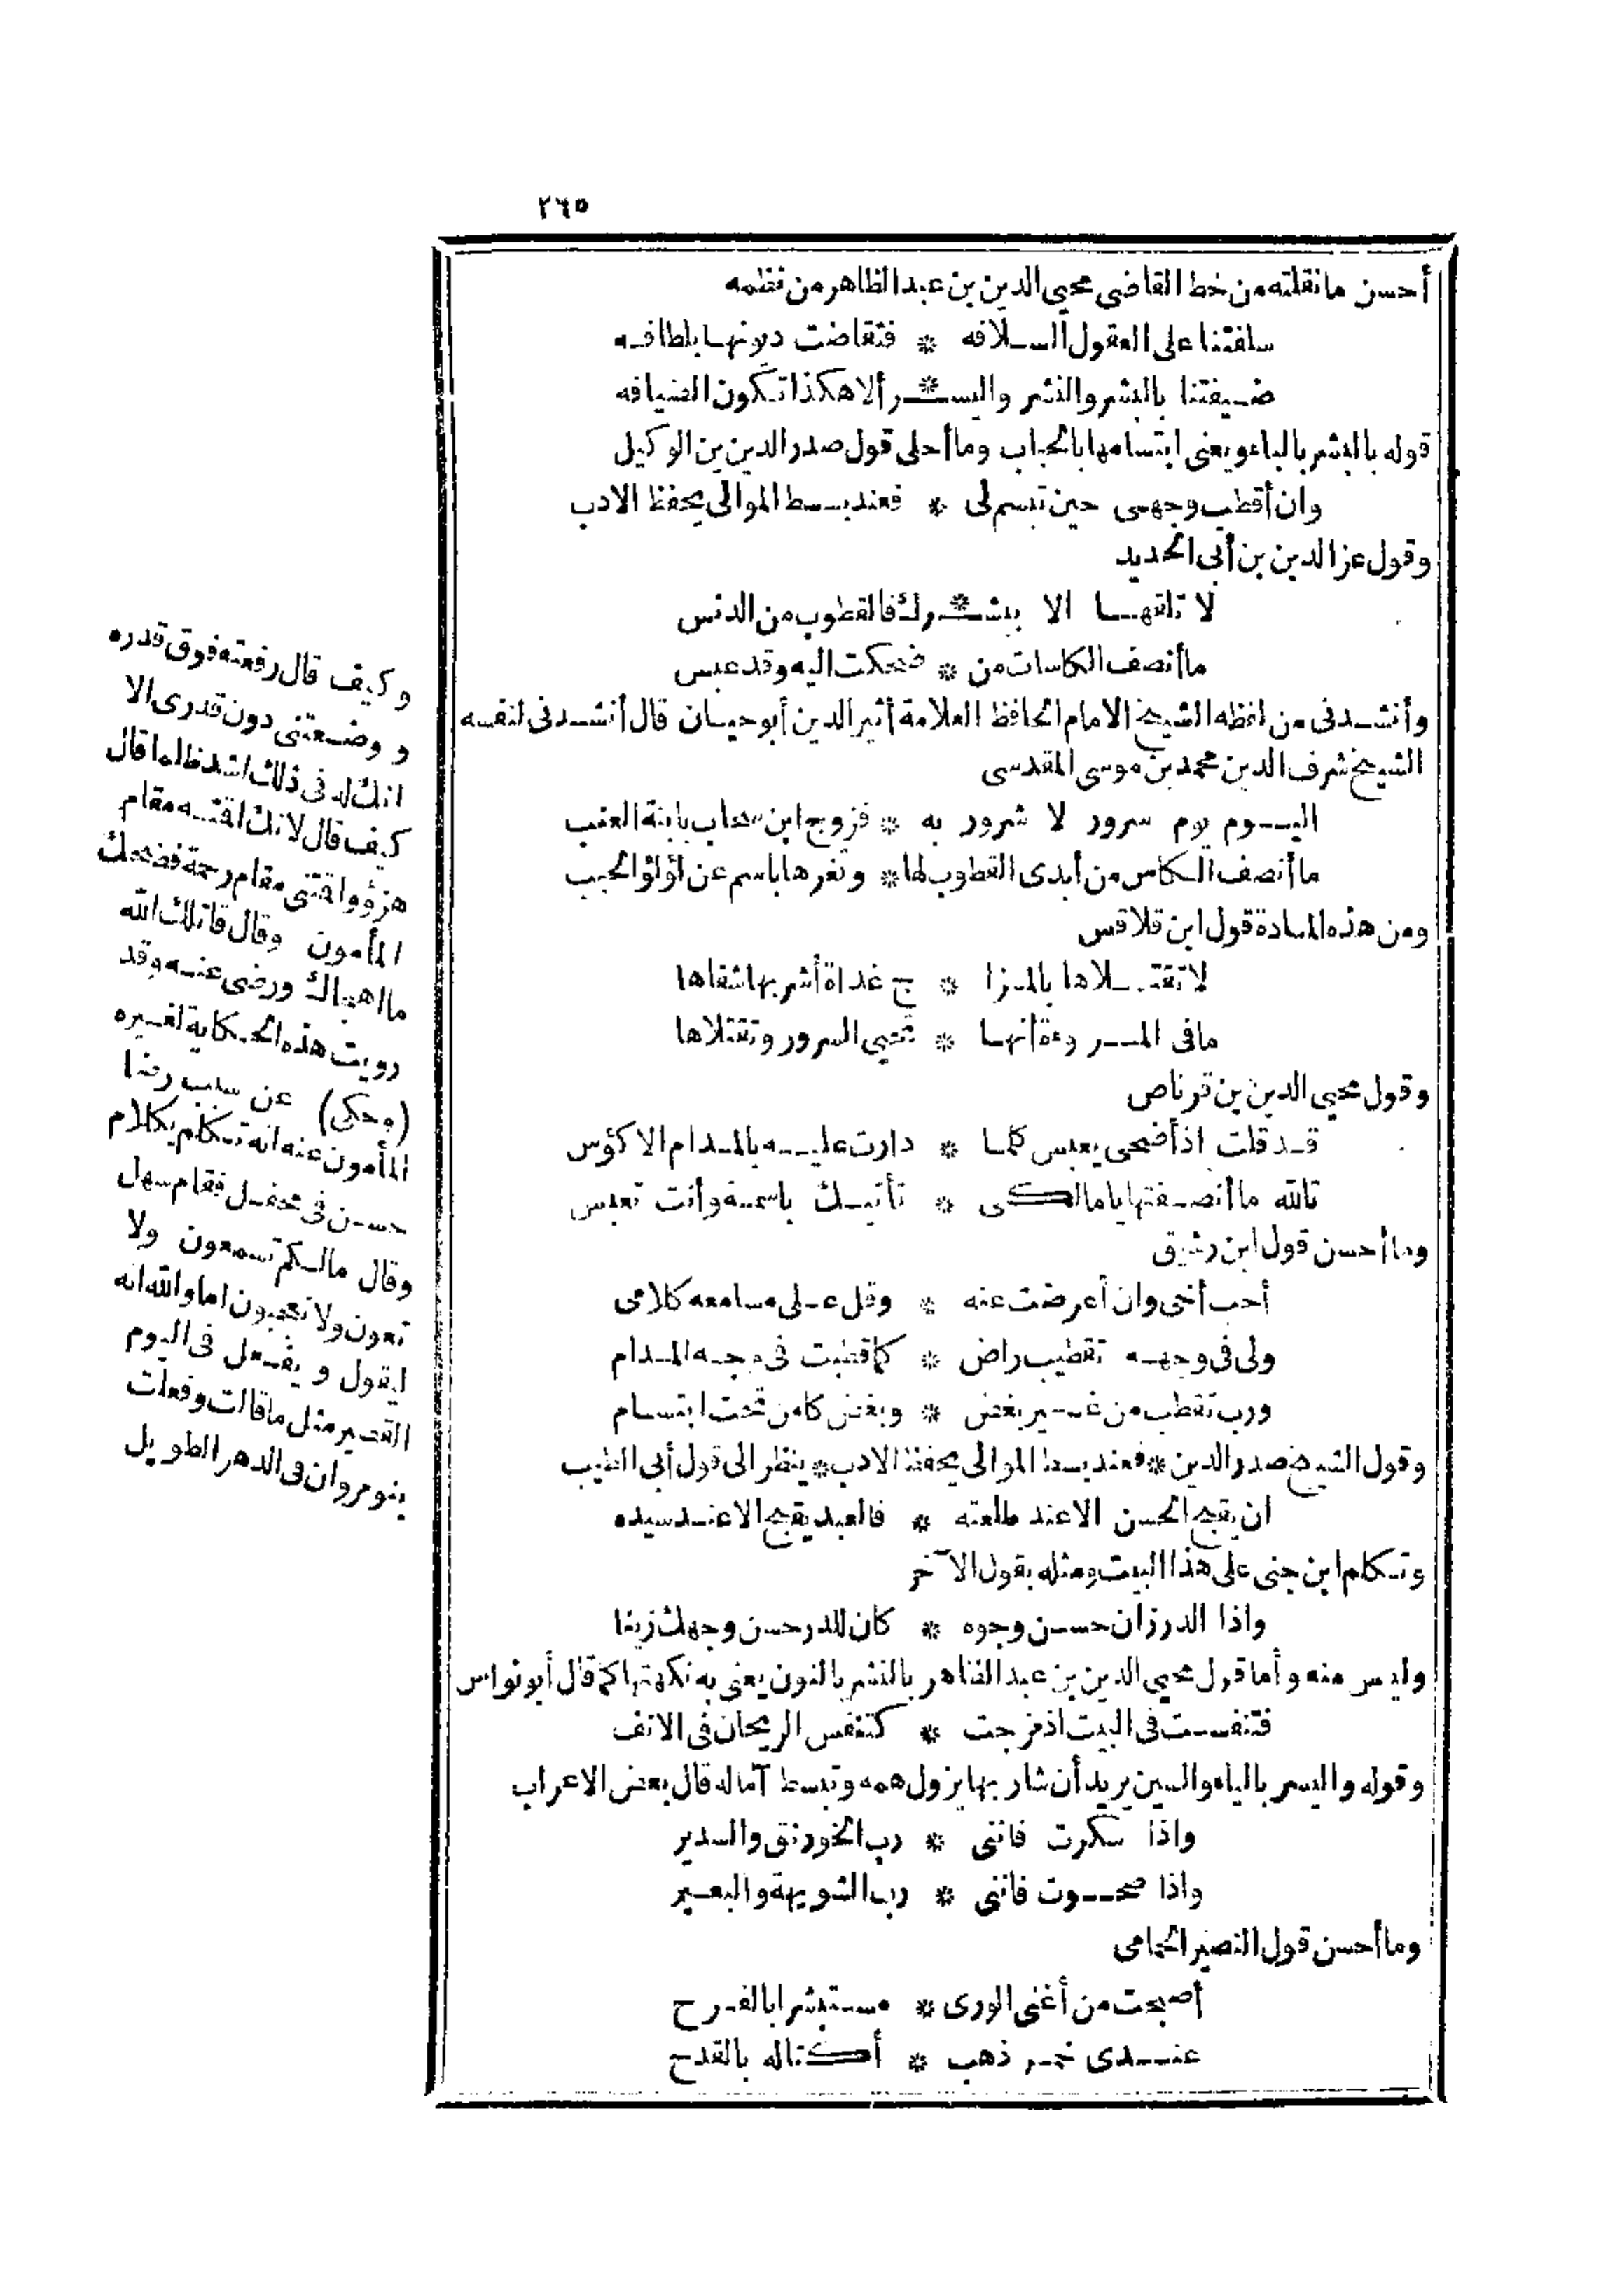 ٢٦٥
أحسن ما نقلته من خط القاضى محيى الدين بن عبد الظاهر من نظمه
سلفتنا على العقول السلافه * فتقاضت ديونها بلطافه
ضيفتنا بالبشر والنشر واليسـ * ـر ألا هكذا تكون الضيافه
قوله بالبشر بالباء ويعنى ابتسامها بالحباب وما أحلى قول صدر الدين بن الوكيل
وان أقطب وجهى حين تبسم لى * فعند بسط الموالى يحفظ الادب
وقول عز الدين بن أبى الحديد
لا تلقهـا الا ببشـ * ـرك فالقطوب من الدنس
ما أنصف الكاسات من * ضحكت اليه وقد عبس
وأنشدنى من لفظه الشيخ الامام الحافظ العلامة أثير الدين أبو حيان قال أنشدنى لنفسه
الشيخ شرف الدين محمد بن موسى المقدسى
اليوم يوم سرور لا شرور به * فزوج ابن سحاب بابنة العنب
ما أنصف الكاس من أبدى القطوب لها * وثغرها باسم عن لؤلؤ الحبب
ومن هذه المادة قول ابن قلاقس
لا تقتلاها بالمزا * ج غداة أشربها شفاها
ما فى المروءة أنها * تحيى السرور وتقتلاها
وقول محيى الدين بن قرناص
قد قلت اذ أضحى يعبس كلما * دارت عليه بالمدام الاكؤس
تالله ما أنصفتها يا مالكى * تأتيك باسمة وأنت تعبس
وما أحسن قول ابن رشيق
أحب أخى وان أعرضت عنه * وقل على مسامعه كلامى
ولى فى وجهه تقطيب راض * كما قطبت فى وجه المدام
ورب تقطب من غير بغض * وبغض كامن تحت ابتسام
وقول الشيخ صدر الدين * فعند بسط الموالى يحفظ الادب * ينظر الى قول أبى الطيب
ان يقبح الحسن الا عند طلعته * فالعبد يقبح الا عند سيده
وتكلم ابن جنى على هذا البيت ومثله بقول الآخر
واذا الدر زان حسن وجوه * كان للدر حسن وجهك زينا
وليس منه وأما قول محيى الدين بن عبد الظاهر بالنشر بالنون يعنى به نكهتها كما قال أبو نواس
فتنفست فى البيت اذ مزجت * كتنفس الريحان فى الانف
وقوله واليسر بالياء والسين يريد أن شاربها يزول همه وتبسط آماله قال بعض الاعراب
واذا سكرت فاننى * رب الخورنق والسدير
واذا صحوت فاننى * رب الشويهة والبعير
وما أحسن قول النصير الحمامى
أصبحت من أغنى الورى * مستبشرا بالفرح
عندى خمر ذهب * أكتاله بالقدح
وكيف قال رفعته فوق قدره
ووضعتنى دون قدرى الا
انك له فى ذلك اشد ظلما قال
كيف قال لانك اقته مقام
هزؤ واقتنى مقام رحمة فضحك
المأمون وقال قاتلك الله
ما اهجاك ورضى عنه وقد
رويت هذه الحكاية لغيره
(وحكى) عن سبب رضا
المأمون عنه انه تكلم بكلام
حسن فى محفل فقام سهل
وقال مالكم تسمعون ولا
تعون ولا تعجبون اما والله انه
ليقول ويفعل فى اليوم
القصير مثل ما قالت وفعلت
بنو مروان فى الدهر الطويل